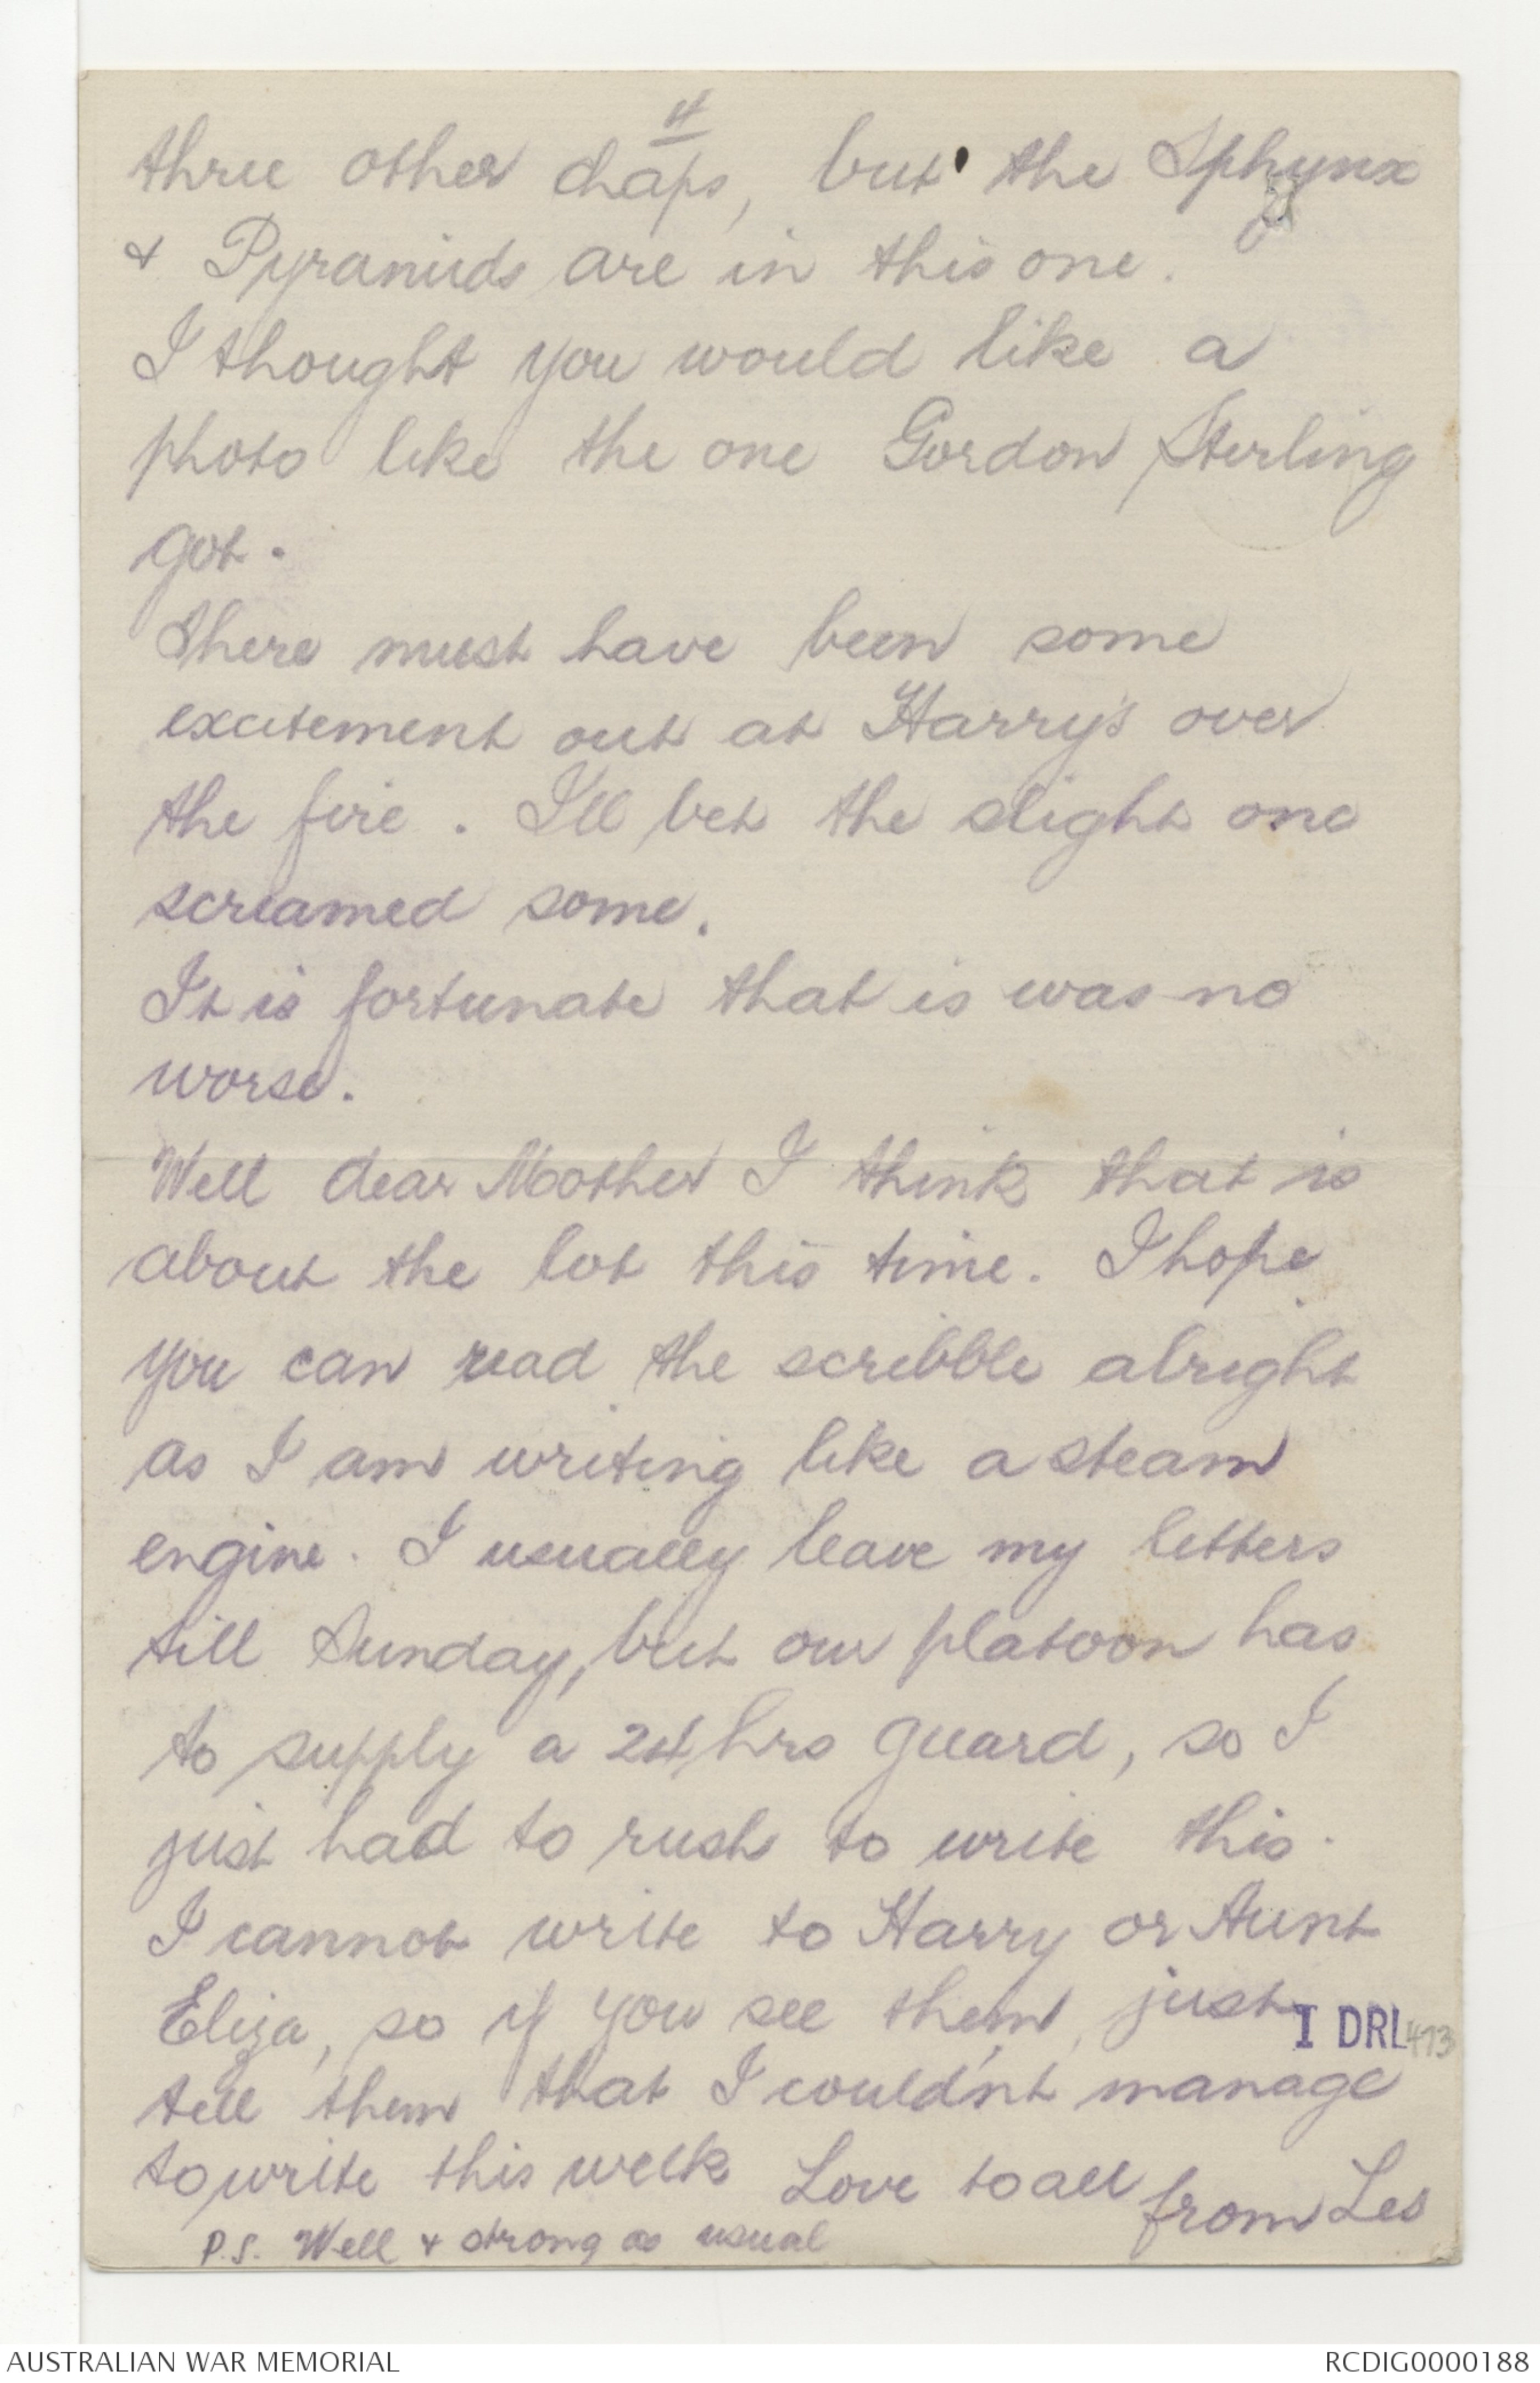 4
three other chaps, but the Sphynx
& Pyramids are in this one.
I thought you would like a
photo like the one Gordon Sterling
got.
There must have been some
excitement out at Harry's over
the fire. I'll bet the slight one
screamed some.
It is fortunate that is was no
worse.
Well dear Mother I think that is
about the lot this time. I hope
you can read the scribble alright
as I am writing like a steam
engine. I usually leave my letters
till Sunday, but our platoon has
to supply a 24 hrs guard, so I
just had to rush to write this.
I cannot write to Harry or Aunt
Eliza, so if you see them, just
I DRL 473
tell them that I couldn't manage
to write this week Love to all from Les
P.S. Well & strong as usual
AUSTRALIAN WAR MEMORIAL
RCDIG0000188